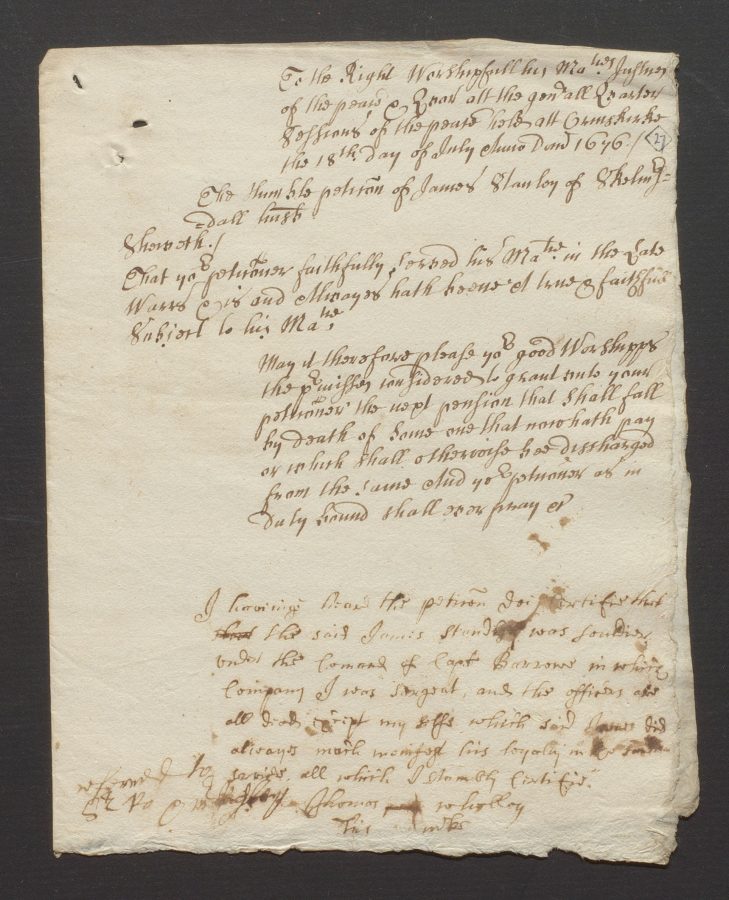 To the Right Worshipfull his Ma:ties Justices
of the peace & Quor att the gen:all Quarter
Sessions of the peace held att Ormskirke
the 18th day of July Anno Dom 1676./
27
The humble petition of James Stanley of Skelm:s=
=dall husb
Sheweth./
That yo:r petitioner faithfully served his Ma:tie in the Late
Warrs & is and Alwayes hath beene A true & faithfull
Subject to his Ma:tie
May it therefore please yo:r good Worshipps
the p:rmisses considered to grant unto your
petitioner the next pension that shall fall
by death of some one that now hath pay
or which shall otherwise bee discharged
from the same And yo:r petitioner as in
duty bound shall ever pray &
I haveing heard the petition doe certifie that
the said James Standley was souldier
under the Comand of Capt Barrowe in which
Company I was Sergent, and the officers are
all dead except my selfe which said James did
alwayes much manifest his loyalty in
service, all which I Humbly Certifie.
referred to
Thomas wholley
his marke